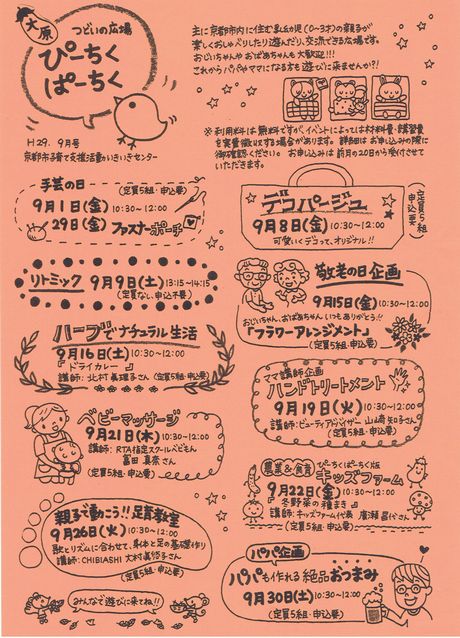 大原
つどいの広場
ぴーちく
ぱーちく
H29. 9月号
京都市子育て支援活動いきいきセンター
主に京都市内に住む乳幼児(0~3才)の親子が
楽しくおしゃべりしたり遊んだり、交流できる広場です。
おじいちゃんや おばあちゃんも 大歓迎!!!
これからパパやママになる方も遊びに来ませんか?!
※利用料は無料ですが、イベントによっては材料費・講習費
を実費徴収する場合があります。詳細は お申し込みの際に
御確認ください。 お申し込みは 前月の20日から受付させて
いただきます。
手芸の日 (定員5組・申込要)
9月1日(金) 10:30~12:00
29日(金) ファスナーポーチ
デコパージュ
9月8日(金) 10:30~12:00
可愛いくデコって、オリジナル!!
(定員5組・申込要)
リトミック 9月9日(土) 13:15~14:15
(定員なし、申込不要)
敬老の日企画
9月15日(金) 10:30~12:00
おじいちゃん、おばあちゃん いつもありがとう!!
「フラワーアレンジメント」
(定員5組・申込要)
ハーブでナチュラル生活
9月16日(土) 10:30~12:00
『ドライカレー』
講師:北村美理子さん (定員5組・申込要)
ママ講師企画
ハンドトリートメント
9月19日(火) 10:30~12:00
講師:ビューティアドバイザー 山崎知子さん
(定員5組・申込要)
ベビーマッサージ
9月21日(木) 10:30~12:00
講師:RTA指定スクールべびもん
富田真奈さん
(定員5組・申込要)
農業&食育
ぴーちくぱーちく版
キッズファーム
9月22日(金) 10:30~12:00
『冬野菜の種まき』
講師:キッズファーム代表 廣瀬昌代さん
(定員5組・申込要)
親子で動こう!!足育教室
9月26日(火) 10:30~12:00
歌とリズムに合わせて、身体と足の基礎作り
講師:CHIBIASHI 大村真悠子さん
(定員5組・申込要)
みんなで遊びに来てね!!
パパ企画
パパも作れる絶品おつまみ
9月30日(土) 10:30~12:00
(定員5組・申込要)